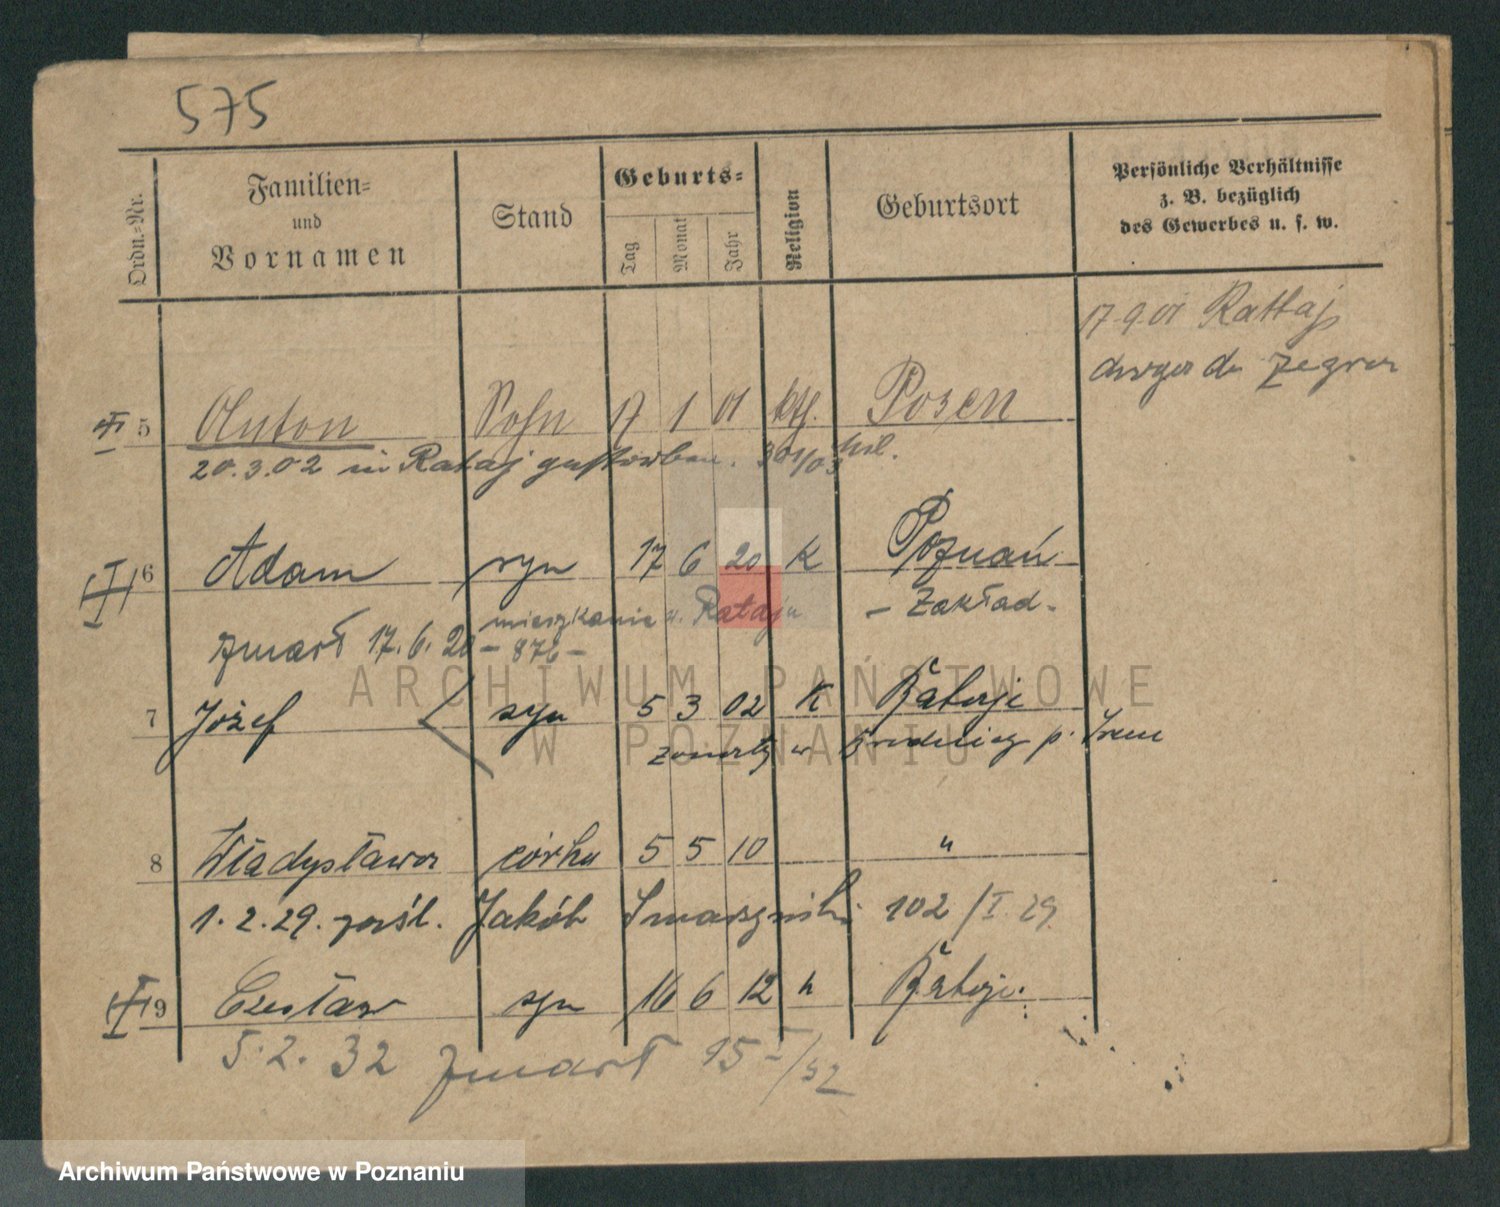 575
Ordn.-Nr.
Familien-
und
Vornamen
Stand
Geburts-
Tag
Monat
Jahr
Religion
Geburtsort
Persönliche Verhältnisse
z. B. bezüglich
des Gewerbes u. s. w.
17.9.01 Rattaj
5 Anton Sohn 17 1 01 kth. Posen
20.3.02 in Rataj gestorben.
6 Adam syn 17 6 20 K Poznań
mieszkanie w Rataju - Zakład -
zmarł 17.6.20 - 876 -
7 Józef syn 5 3 02 K Rataje
8 Władysława córka 5 5 10 "
1.2.29. pośl. Jakób 102/I.29
9 Czesław syn 16 6 12 Rataje.
5.2.32 zmarł
ARCHIWUM PAŃSTWOWE
W POZNANIU
Archiwum Państwowe w Poznaniu